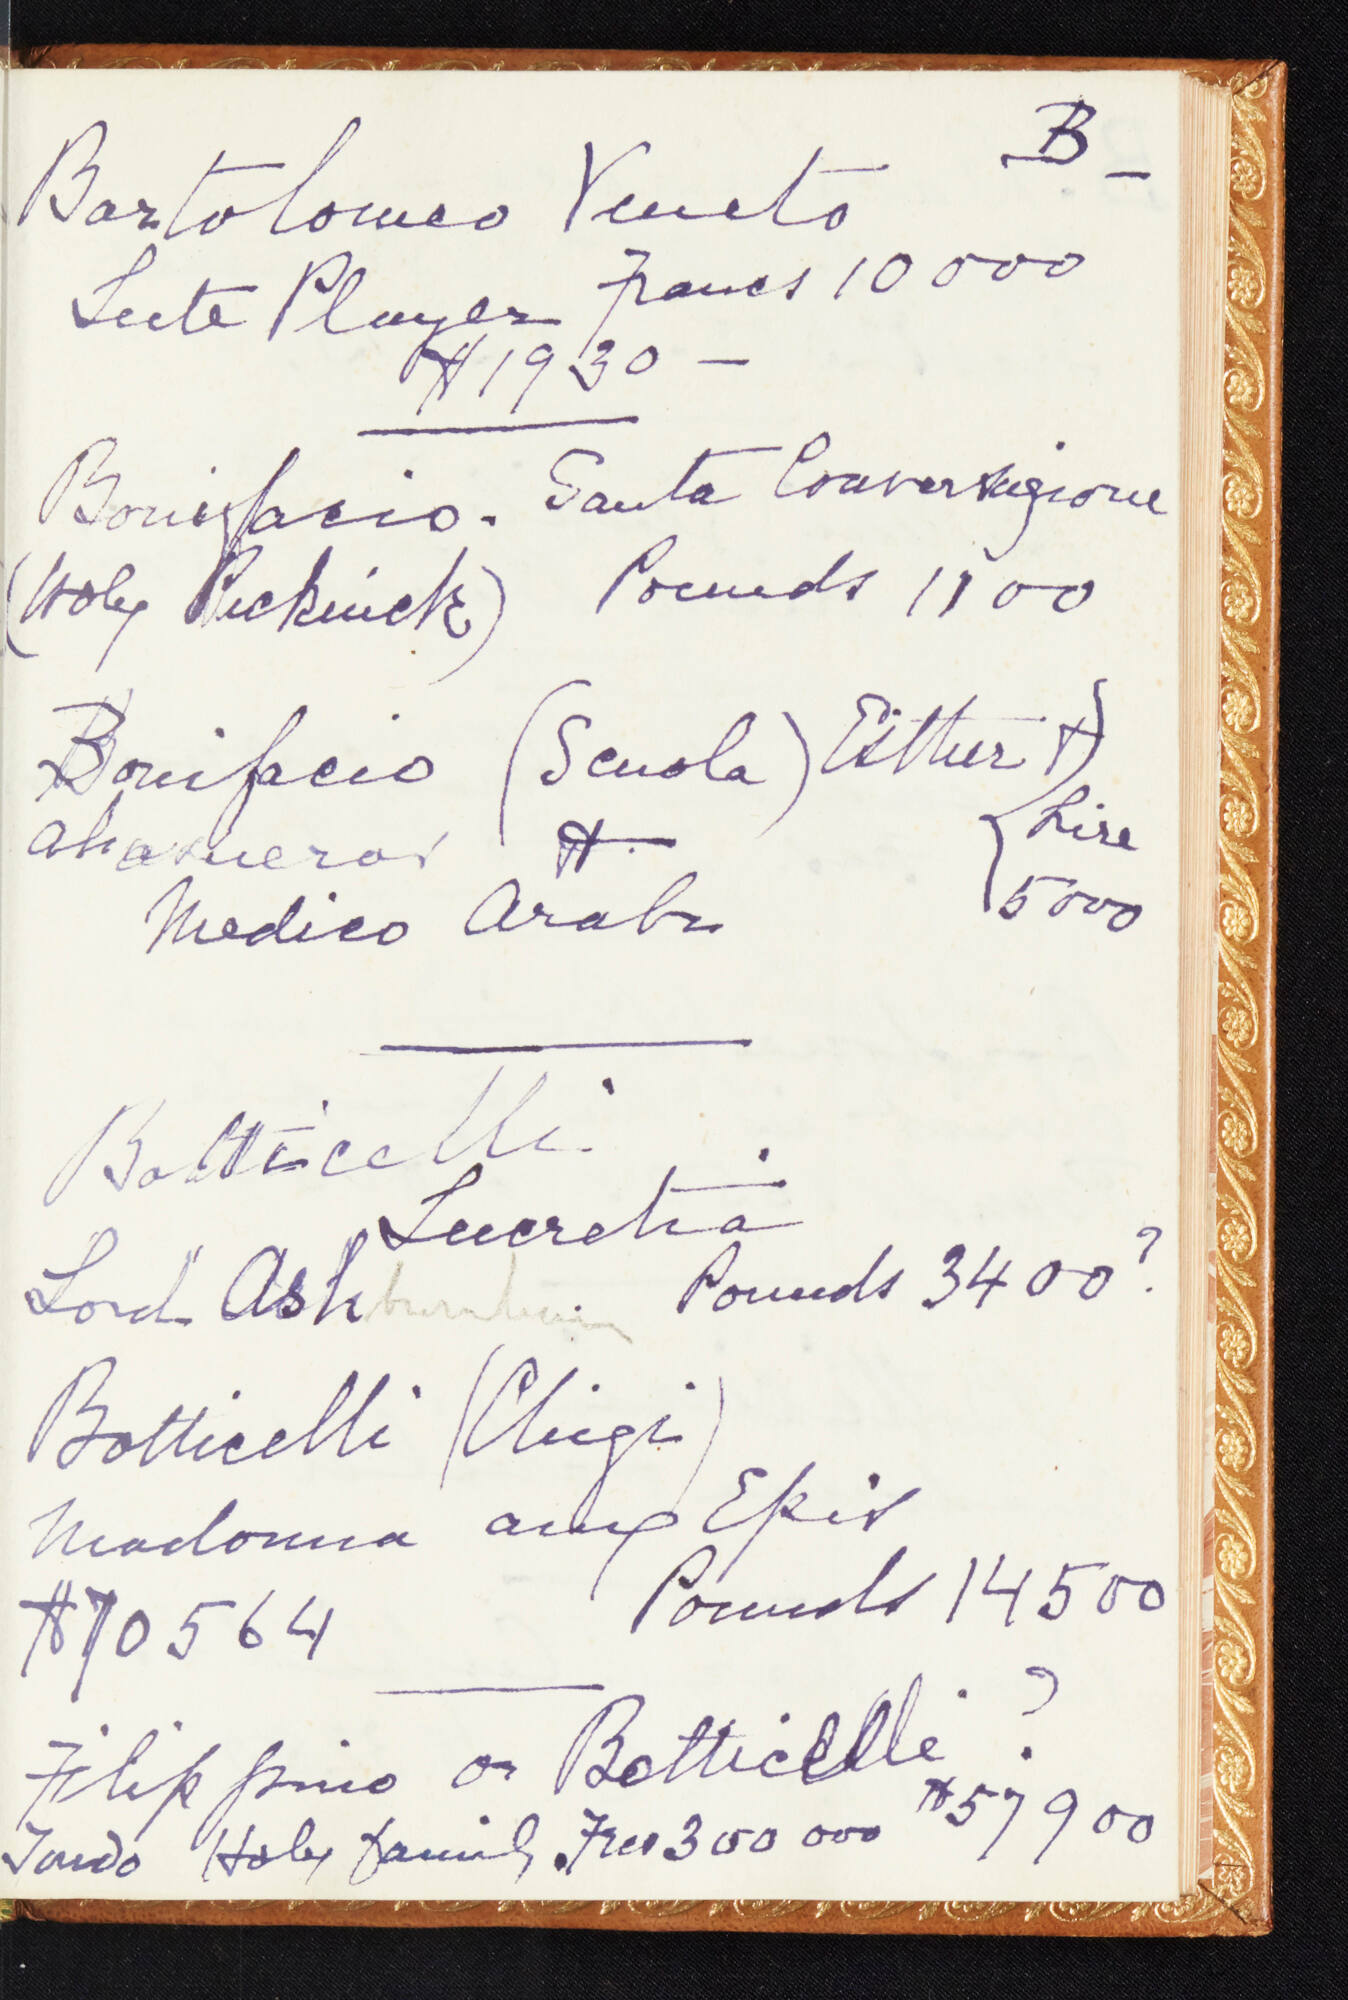 B -
Bartolomeo Veneto
Lute Player Francs 10 000
$1930 —
Bonifacio. Santa Conversazione
(Holy Picknick) Pounds 1100
Bonifacio (Scuola) Esther &
Ahasueros
{Lire
5000
Medico Arabo
Botticelli
Lucretia
Lord Ashburnham Pounds 3400?
Botticelli (Chigi)
Madonna aux Epis
$70564 Pounds 14500
Filippino or Botticelli?
Tondo Holy family. Frcs 300 000 $57900